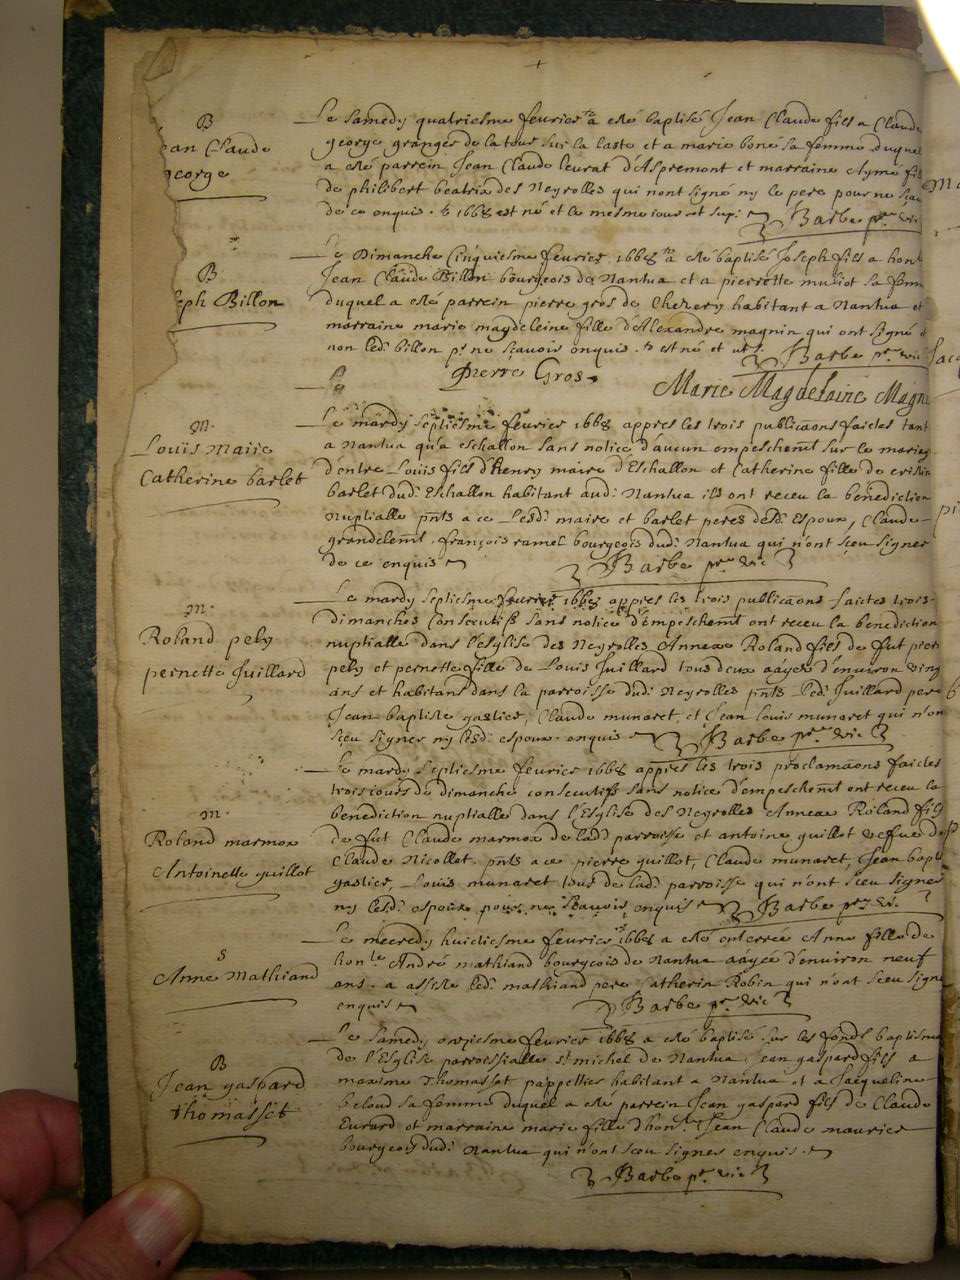 B
Jean Claude
george
Le samedy quatriesme febvrier a esté baptisé Jean Claude fils a Claude
george granger de la tour sur la coste et a marie bone sa femme duquel
a esté parrein Jean Claude leurat d'Aspremont et marraine aymé fil
de philibert beatrix des Neyrolles qui nont signé ny le pere pour ne sçav
de ce enquis. 1668 est né et le mesme iour ut sup:
Barbe pr vic
B
seph Billon
Le Dimanche Cinquiesme febvrier 1668 a esté baptisé Joseph fils a hon
Jean Claude Billon bourgeois de Nantua et a pierrette muriot sa fem
duquel a esté parrein pierre gros de Chezery habitant a Nantua et
marraine marie magdeleine fille d'Alexandre magnin qui ont signé
non led: billon pr ne sçavoir enquis. est né et ut s.
Barbe pr vic
Pierre Gros
Marie Magdelaine Magn
Le
M.
Louis Maire
Catherine barlet
Le mardy septiesme fevrier 1668 appres les trois publicaons faictes tant
a Nantua qu'a eschallon sans notice d'aucun empeschemt sur le mariag
d'entre Louis fils d'henry maire d'Eschallon et Catherine fille de
barlet dud: Eschallon habitant aud: Nantua ils ont receu la benediction
Nuptialle pnts a ce Lesd: maire et barlet peres desd: Espoux, Claude
grandclemt. françois ramel bourgeois dud: Nantua qui n'ont sceu signer
de ce enquis
Barbe pr vic
M.
Roland pely
pernette Juillard
Le mardy septiesme fevrier 1668 appres les trois publicaons faictes trois
dimanches Consecutifs sans notice d'empeschemt ont receu la benediction
nuptialle dans l'esglise des Neyrolles Annexe Roland fils de fut pierr
pely et pernette fille de Louis Juillard tous deux aagez d'environ ving
ans et habitans dans la parroisse dud: Neyrolles pnts led: Juillard pere
Jean baptiste gastier, Claude munaret, et Jean Louis munaret qui n'on
sceu signer ny lesd: espoux enquis
Barbe pr vic
M.
Roland marmox
Antoinette guillot
Le mardy septiesme fevrier 1668 appres les trois proclamaons faictes
trois iours de dimanche consecutifs sans notice d'empeschemt ont receu la
benediction nuptialle dans l'Esglise des Neyrolles Annexe Roland fils
de fut Claude marmox de lad: parroisse et antoine guillot vefve de
Claude Nicollet. pnts a ce pierre guillot, Claude munaret, Jean bapti
gastier, Louis munaret tous de lad: parroisse qui n'ont sceu signer
ny lesd: espoux pour ne sçavoir enquis
Barbe pr vi.
S
Anne Mathiand
Le mecredy huictiesme fevrier 1668 a esté enterrée Anne fille de
honle André mathiand bourgeois de Nantua aagée d'environ neuf
ans. a assisté led: mathiand pere Catherin Robin qui n'ont sceu signe
enquis
Barbe pr vic
B
Jean gaspard
Thomasset
Le samedy onziesme fevrier 1668 a esté baptisé sur les fonds baptisma
de l'Esglise parroessialle st michel de Nantua Jean gaspard fils a
maxime Thomasset pappetier habitant a Nantua et a Jacqueline
beloud sa femme duquel a esté parrein Jean gaspard fils de Claude
Eurard et marraine marie fille d'honle Jean Claude maurier
bourgeois dud: Nantua qui n'ont sceu signer enquis.
Barbe pr vic